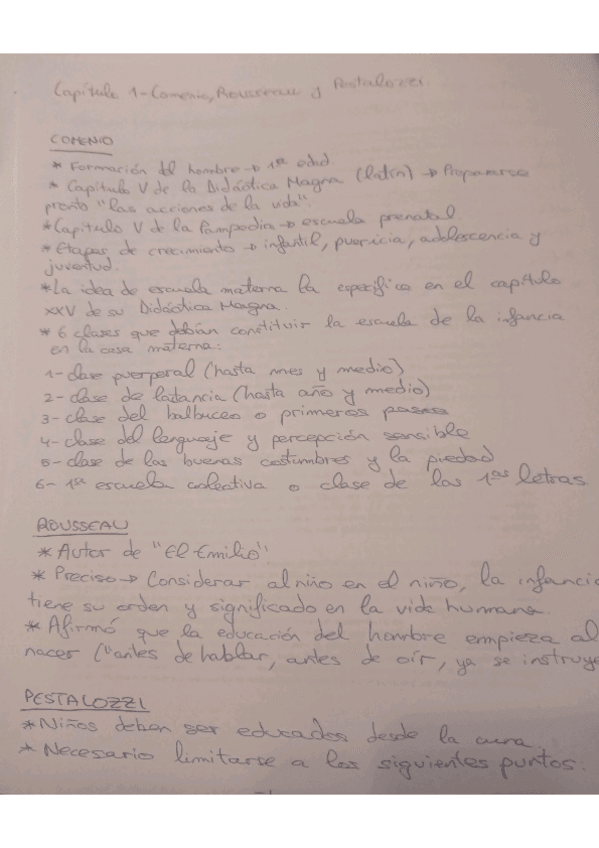 Capítulo 1- Comenio, Rousseau y Pestalozzi.
COMENIO
* Formación del hombre → 1ª edad.
* Capítulo V de la Didáctica Magna (latín) → Prepararse
pronto "las acciones de la vida".
* Capítulo V de la Pampedia → escuela prenatal.
* Etapas de crecimiento → infantil, puericia, adolescencia y
juventud.
* La idea de escuela materna la especifica en el capítulo
XXV de su Didáctica Magna.
* 6 clases que debían constituir la escuela de la infancia
en la casa materna:
1- clase puerperal (hasta mes y medio)
2- clase de lactancia (hasta año y medio)
3- clase del balbuceo o primeros pasos
4- clase del lenguaje y percepción sensible
5- clase de las buenas costumbres y la piedad
6- 1ª escuela colectiva o clase de las 1as letras
ROUSSEAU
* Autor de "El Emilio"
* Preciso → Considerar al niño en el niño, la infancia
tiene su orden y significado en la vida humana.
* Afirmó que la educación del hombre empieza al
nacer ("antes de hablar, antes de oír, ya se instruye
PESTALOZZI
* Niños deben ser educados desde la cuna.
* Necesario limitarse a los siguientes puntos: